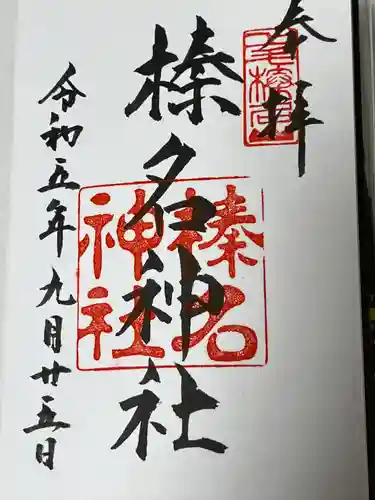 奉拝
榛名神社
榛名
神社
令和五年九月廿五日